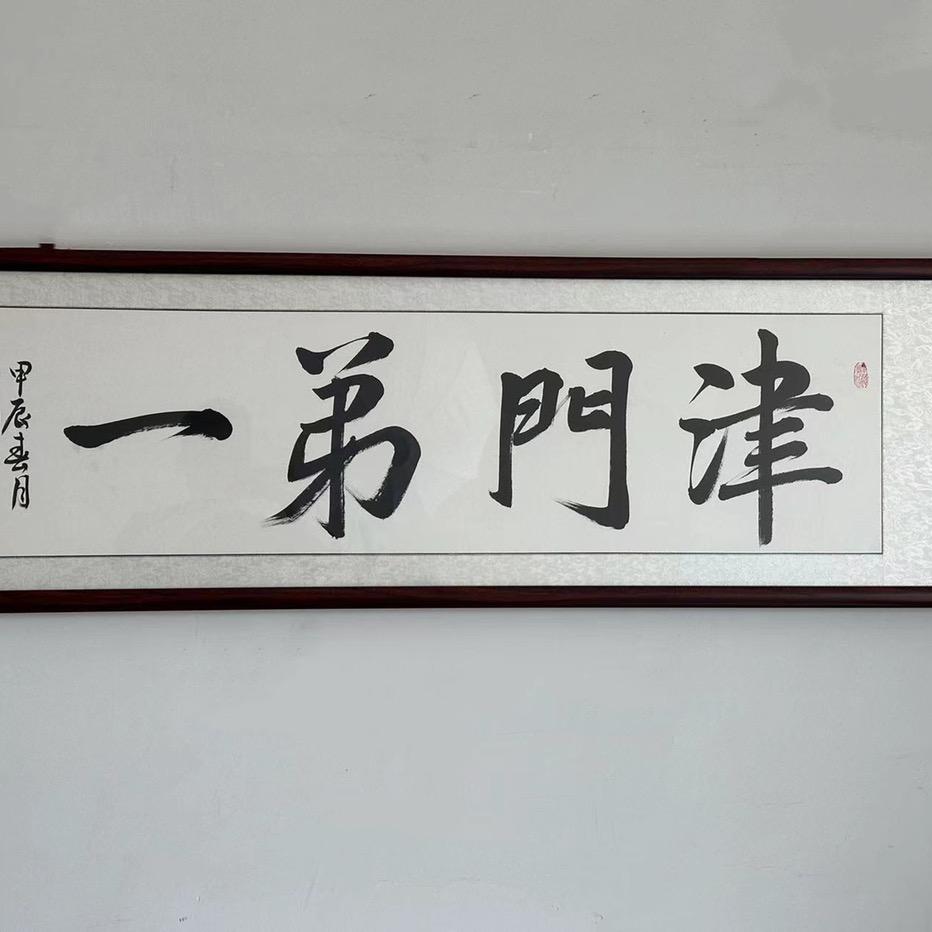 津門弟一
甲辰春月